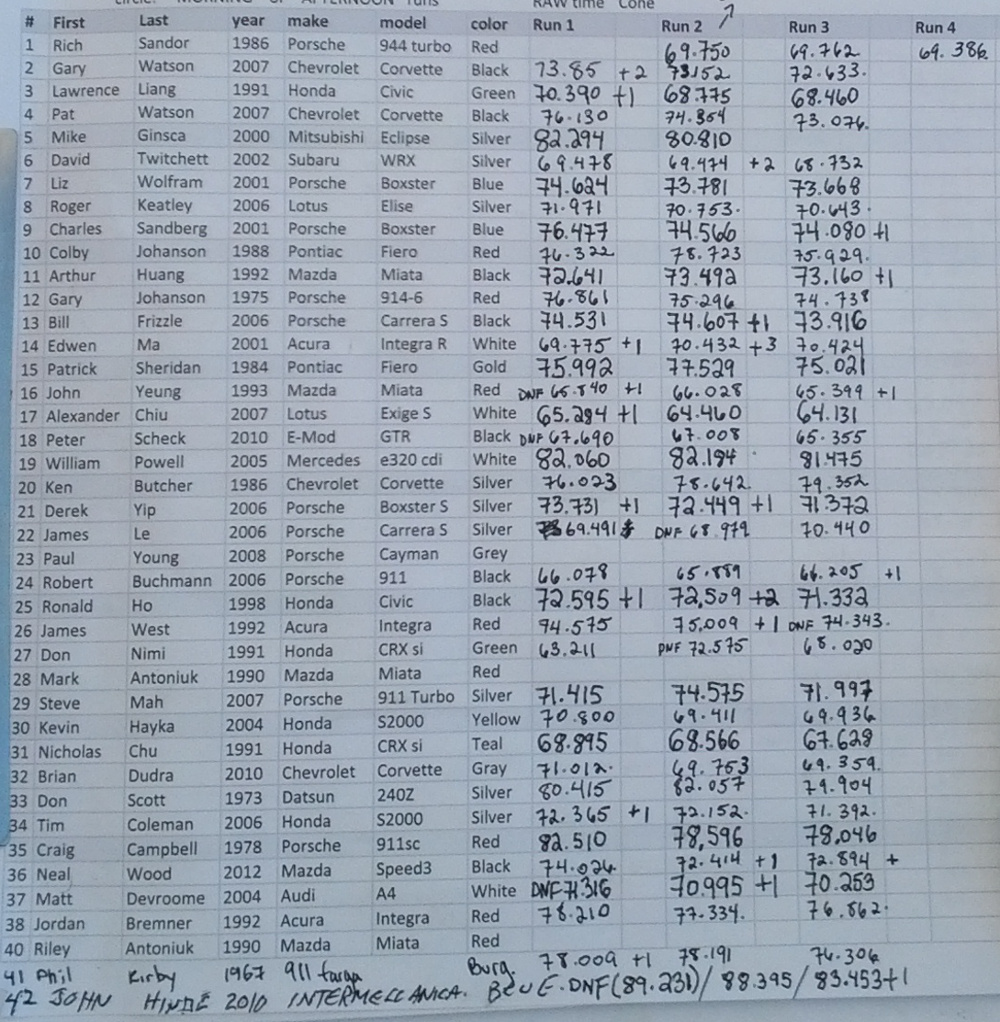 circle: MORNING or AFTERNOON runs RAW time Cone
# First Last year make model color Run 1 Run 2 Run 3 Run 4
1 Rich Sandor 1986 Porsche 944 turbo Red 69.750 69.762 69.386
2 Gary Watson 2007 Chevrolet Corvette Black 73.85 +2 73152 72.633.
3 Lawrence Liang 1991 Honda Civic Green 70.390 +1 68.775 68.460
4 Pat Watson 2007 Chevrolet Corvette Black 76.130 74.354 73.076.
5 Mike Ginsca 2000 Mitsubishi Eclipse Silver 82.294 80.810
6 David Twitchett 2002 Subaru WRX Silver 69.478 69.474 +2 68.732
7 Liz Wolfram 2001 Porsche Boxster Blue 74.624 73.781 73.668
8 Roger Keatley 2006 Lotus Elise Silver 71.971 70.753. 70.643.
9 Charles Sandberg 2001 Porsche Boxster Blue 76.477 74.566 74.080 +1
10 Colby Johanson 1988 Pontiac Fiero Red 76.322 78.723 75.929.
11 Arthur Huang 1992 Mazda Miata Black 72.641 73.492 73.160 +1
12 Gary Johanson 1975 Porsche 914-6 Red 76.861 75.296 74.738
13 Bill Frizzle 2006 Porsche Carrera S Black 74.531 74.607 +1 73.916
14 Edwen Ma 2001 Acura Integra R White 69.775 +1 70.432 +3 70.424
15 Patrick Sheridan 1984 Pontiac Fiero Gold 75.992 77.529 75.021
16 John Yeung 1993 Mazda Miata Red DNF 65.840 +1 66.028 65.399 +1
17 Alexander Chiu 2007 Lotus Exige S White 65.284 +1 64.460 64.131
18 Peter Scheck 2010 E-Mod GTR Black DNF 67.690 67.008 65.355
19 William Powell 2005 Mercedes e320 cdi White 82.060 82.194 81.475
20 Ken Butcher 1986 Chevrolet Corvette Silver 76.023 78.642 79.352
21 Derek Yip 2006 Porsche Boxster S Silver 73.731 +1 72.449 +1 71.372
22 James Le 2006 Porsche Carrera S Silver 69.491 DNF 68.979 70.440
23 Paul Young 2008 Porsche Cayman Grey
24 Robert Buchmann 2006 Porsche 911 Black 66.078 65.889 66.205 +1
25 Ronald Ho 1998 Honda Civic Black 72.595 +1 72,509 +2 71.332
26 James West 1992 Acura Integra Red 94.575 75,009 +1 DNF 74.343.
27 Don Nimi 1991 Honda CRX si Green 63.211 DNF 72.575 68.020
28 Mark Antoniuk 1990 Mazda Miata Red
29 Steve Mah 2007 Porsche 911 Turbo Silver 71.415 74.575 71.997
30 Kevin Hayka 2004 Honda S2000 Yellow 70.800 69.411 69.936
31 Nicholas Chu 1991 Honda CRX si Teal 68.895 68.566 67.628
32 Brian Dudra 2010 Chevrolet Corvette Gray 71.012. 69.753 69.359.
33 Don Scott 1973 Datsun 240Z Silver 80.415 82.057 79.904
34 Tim Coleman 2006 Honda S2000 Silver 72.365 +1 72.152. 71.392.
35 Craig Campbell 1978 Porsche 911sc Red 82.510 78,596 78,046
36 Neal Wood 2012 Mazda Speed3 Black 74.026. 72.414 +1 72.894 +
37 Matt Devroome 2004 Audi A4 White DNF 71.316 70.995 +1 70.253
38 Jordan Bremner 1992 Acura Integra Red 78.210 77.334. 76.862.
40 Riley Antoniuk 1990 Mazda Miata Red
41 Phil Kirby 1967 911 targa Burg. 78.009 +1 78.191 76.306
42 JOHN HINDE 2010 INTERMECCANICA. BLUE. DNF(89.231)/ 88.395/ 83.453+1